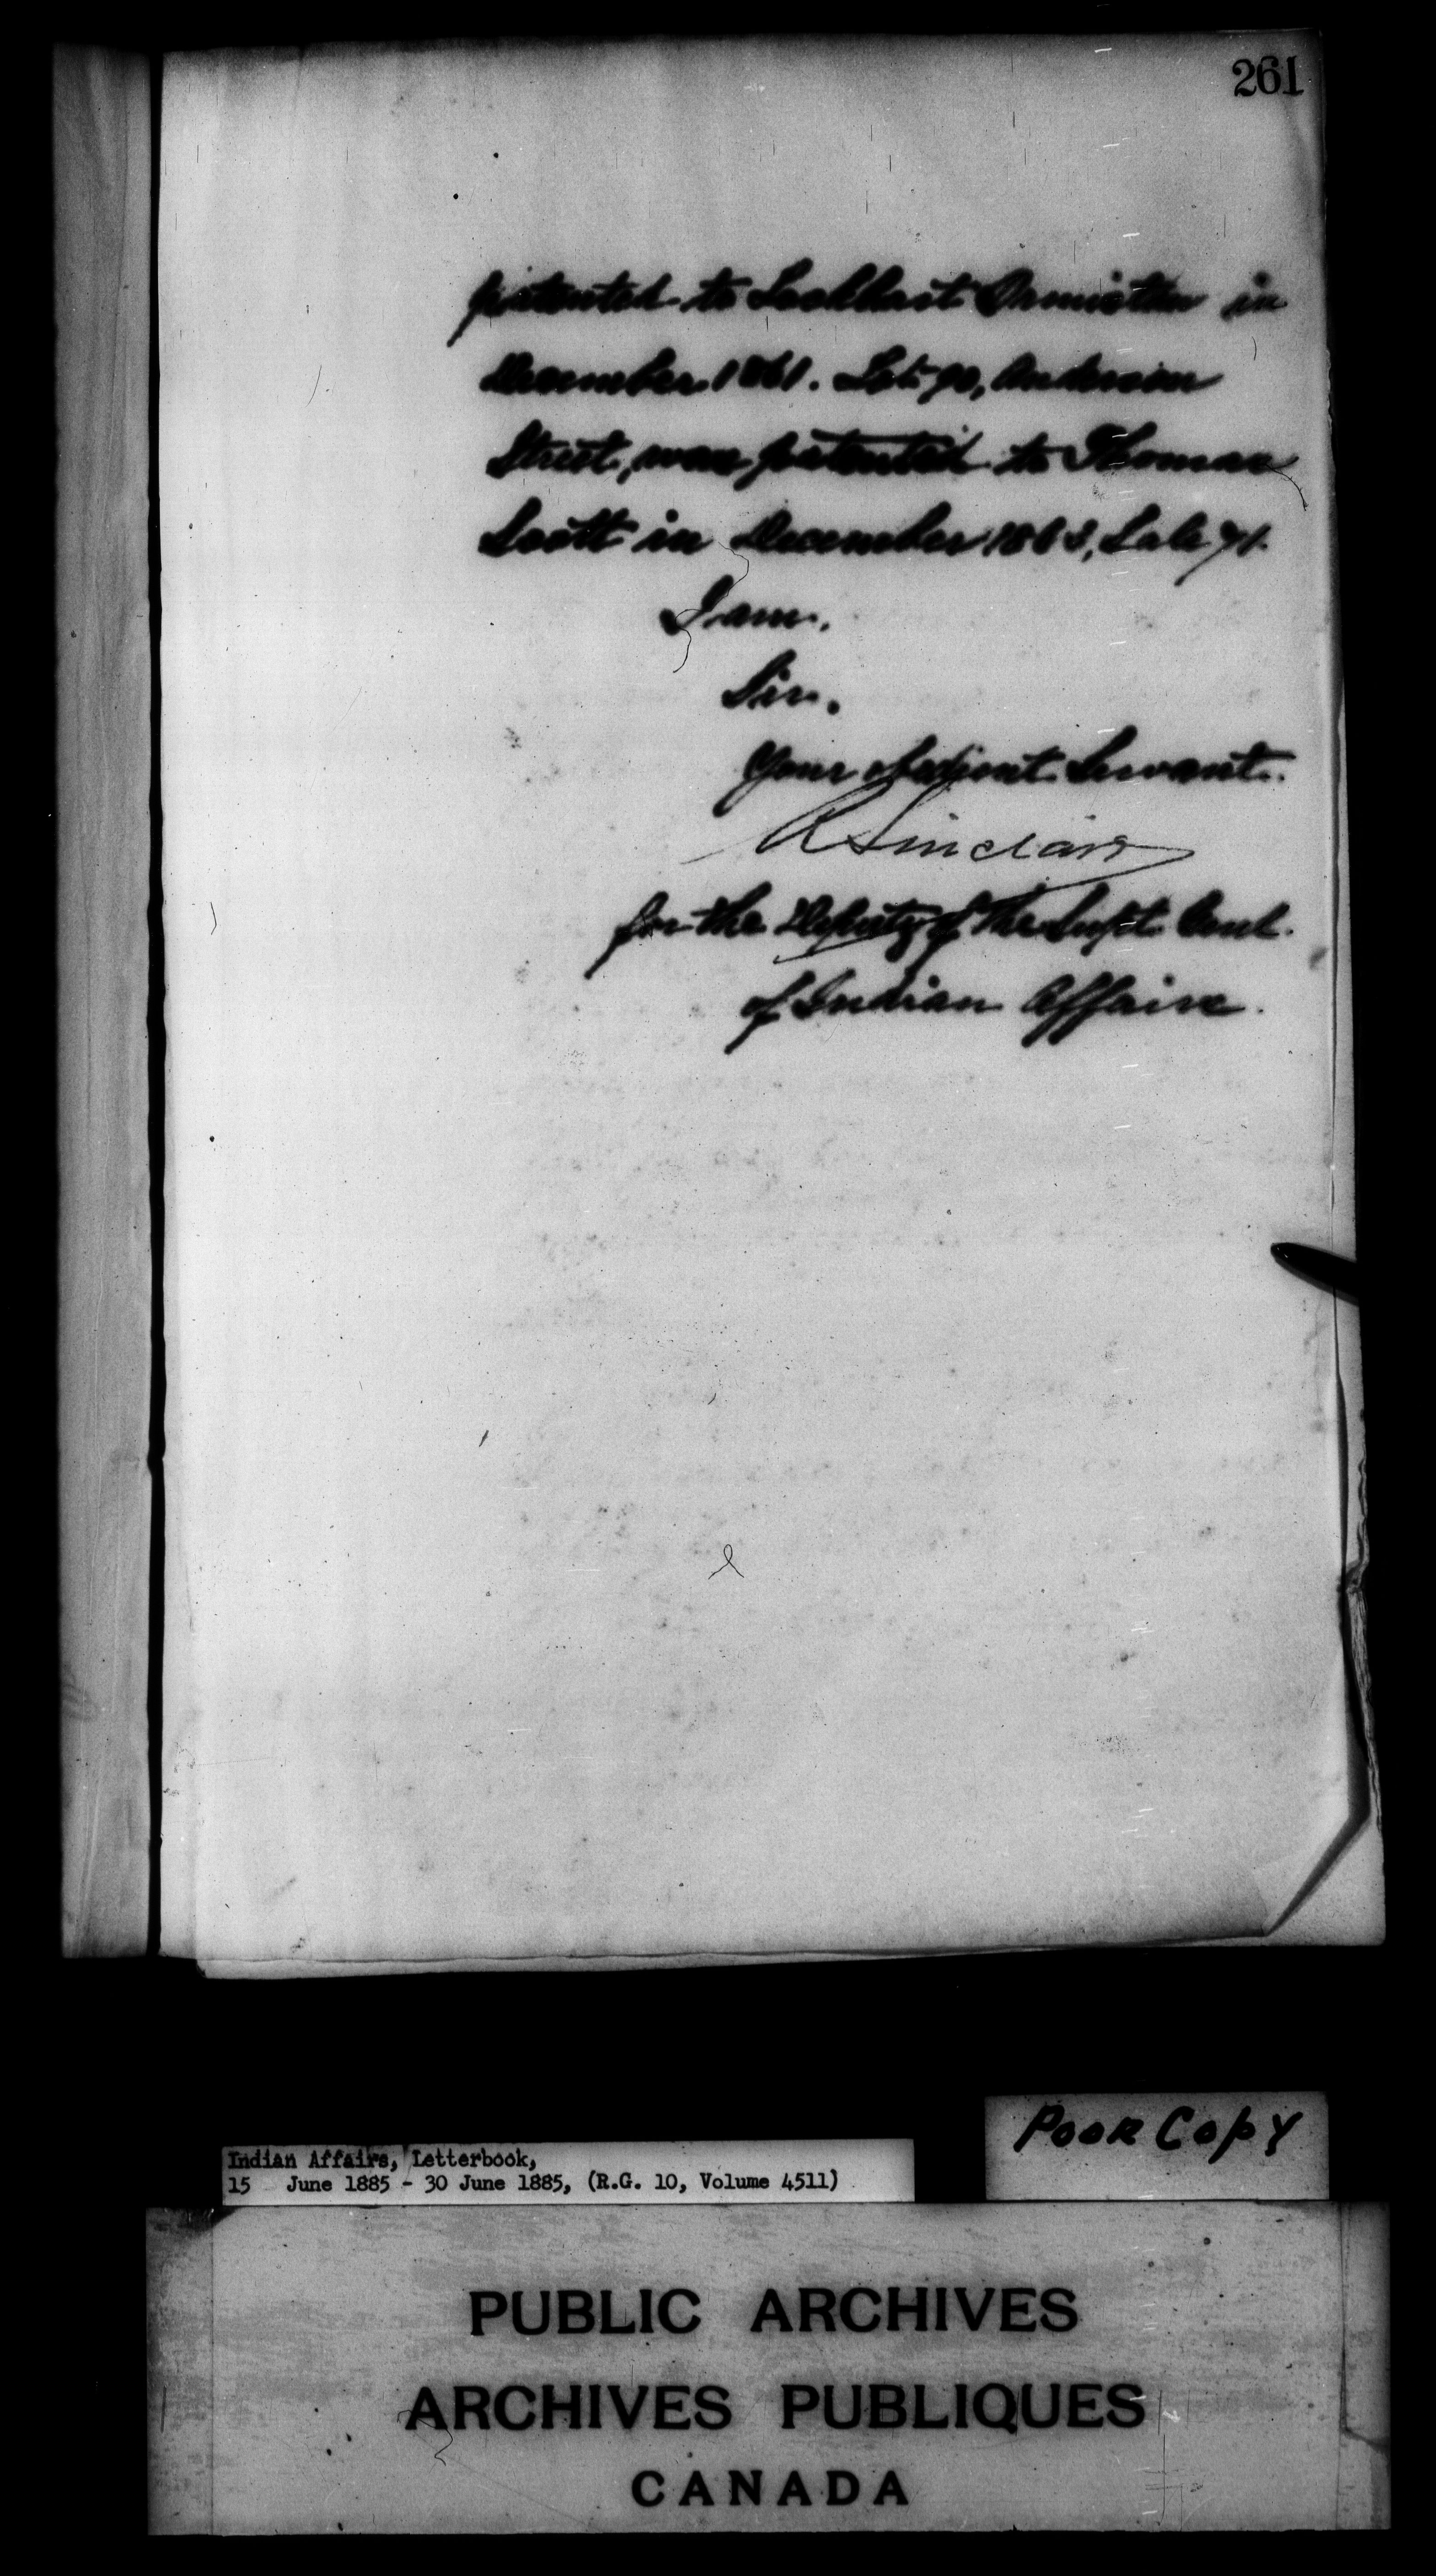 261
patented to Lockhart Ormiston in
December 1861. Lot 90, Anderson
Street, was patented to Thomas
Scott in December 1863, Sale 71.
I am.
Sir.
Your obedient Servant.
R Sinclair
for the Deputy of the Supt. Genl.
of Indian Affairs.
Poor Copy
Indian Affairs, Letterbook,
15 June 1885 - 30 June 1885, (R.G. 10, Volume 4511)
PUBLIC ARCHIVES
ARCHIVES PUBLIQUES
CANADA